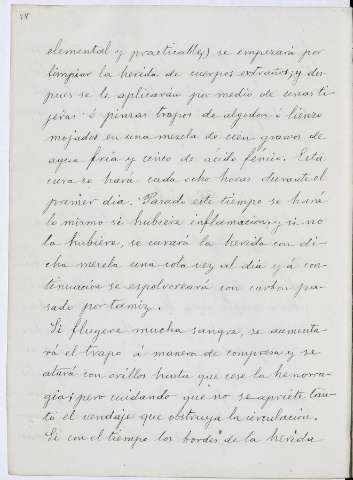 28
elemental y practicable,) se empezará por
limpiar la herida de cuerpos extraños, y des-
pues se le aplicarán por medio de unas ti-
jeras ó pinzas trapos de algodon ó lienzo
mojados en una mezcla de cien gramos de
agua fria y cinco de ácido fénico. Esta
cura se hará cada ocho horas durante el
primer dia. Pasado este tiempo se hará
lo mismo si hubiera inflamacion, y si no
la hubiere, se curará la herida con di-
cha mezcla una sola vez al dia y á con-
tinuacion se espolvoreará con carbon pa-
sado por tamiz.
Si fluyere mucha sangre, se aumenta-
rá el trapo á manera de compresa y se
atará con orillos hasta que cese la hemorra-
gia; pero cuidando que no se apriete tan-
to el vendaje que obstruya la circulacion.
Si con el tiempo los bordes de la herida